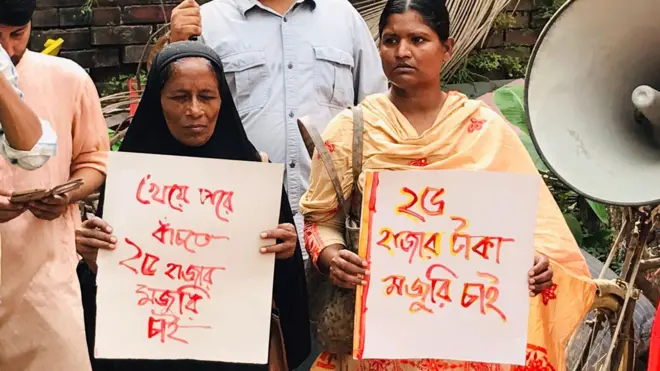 খেয়ে পরে
বাঁচতে
২৫ হাজার
মজুরি
চাই
২৫
হাজার টাকা
মজুরি চাই